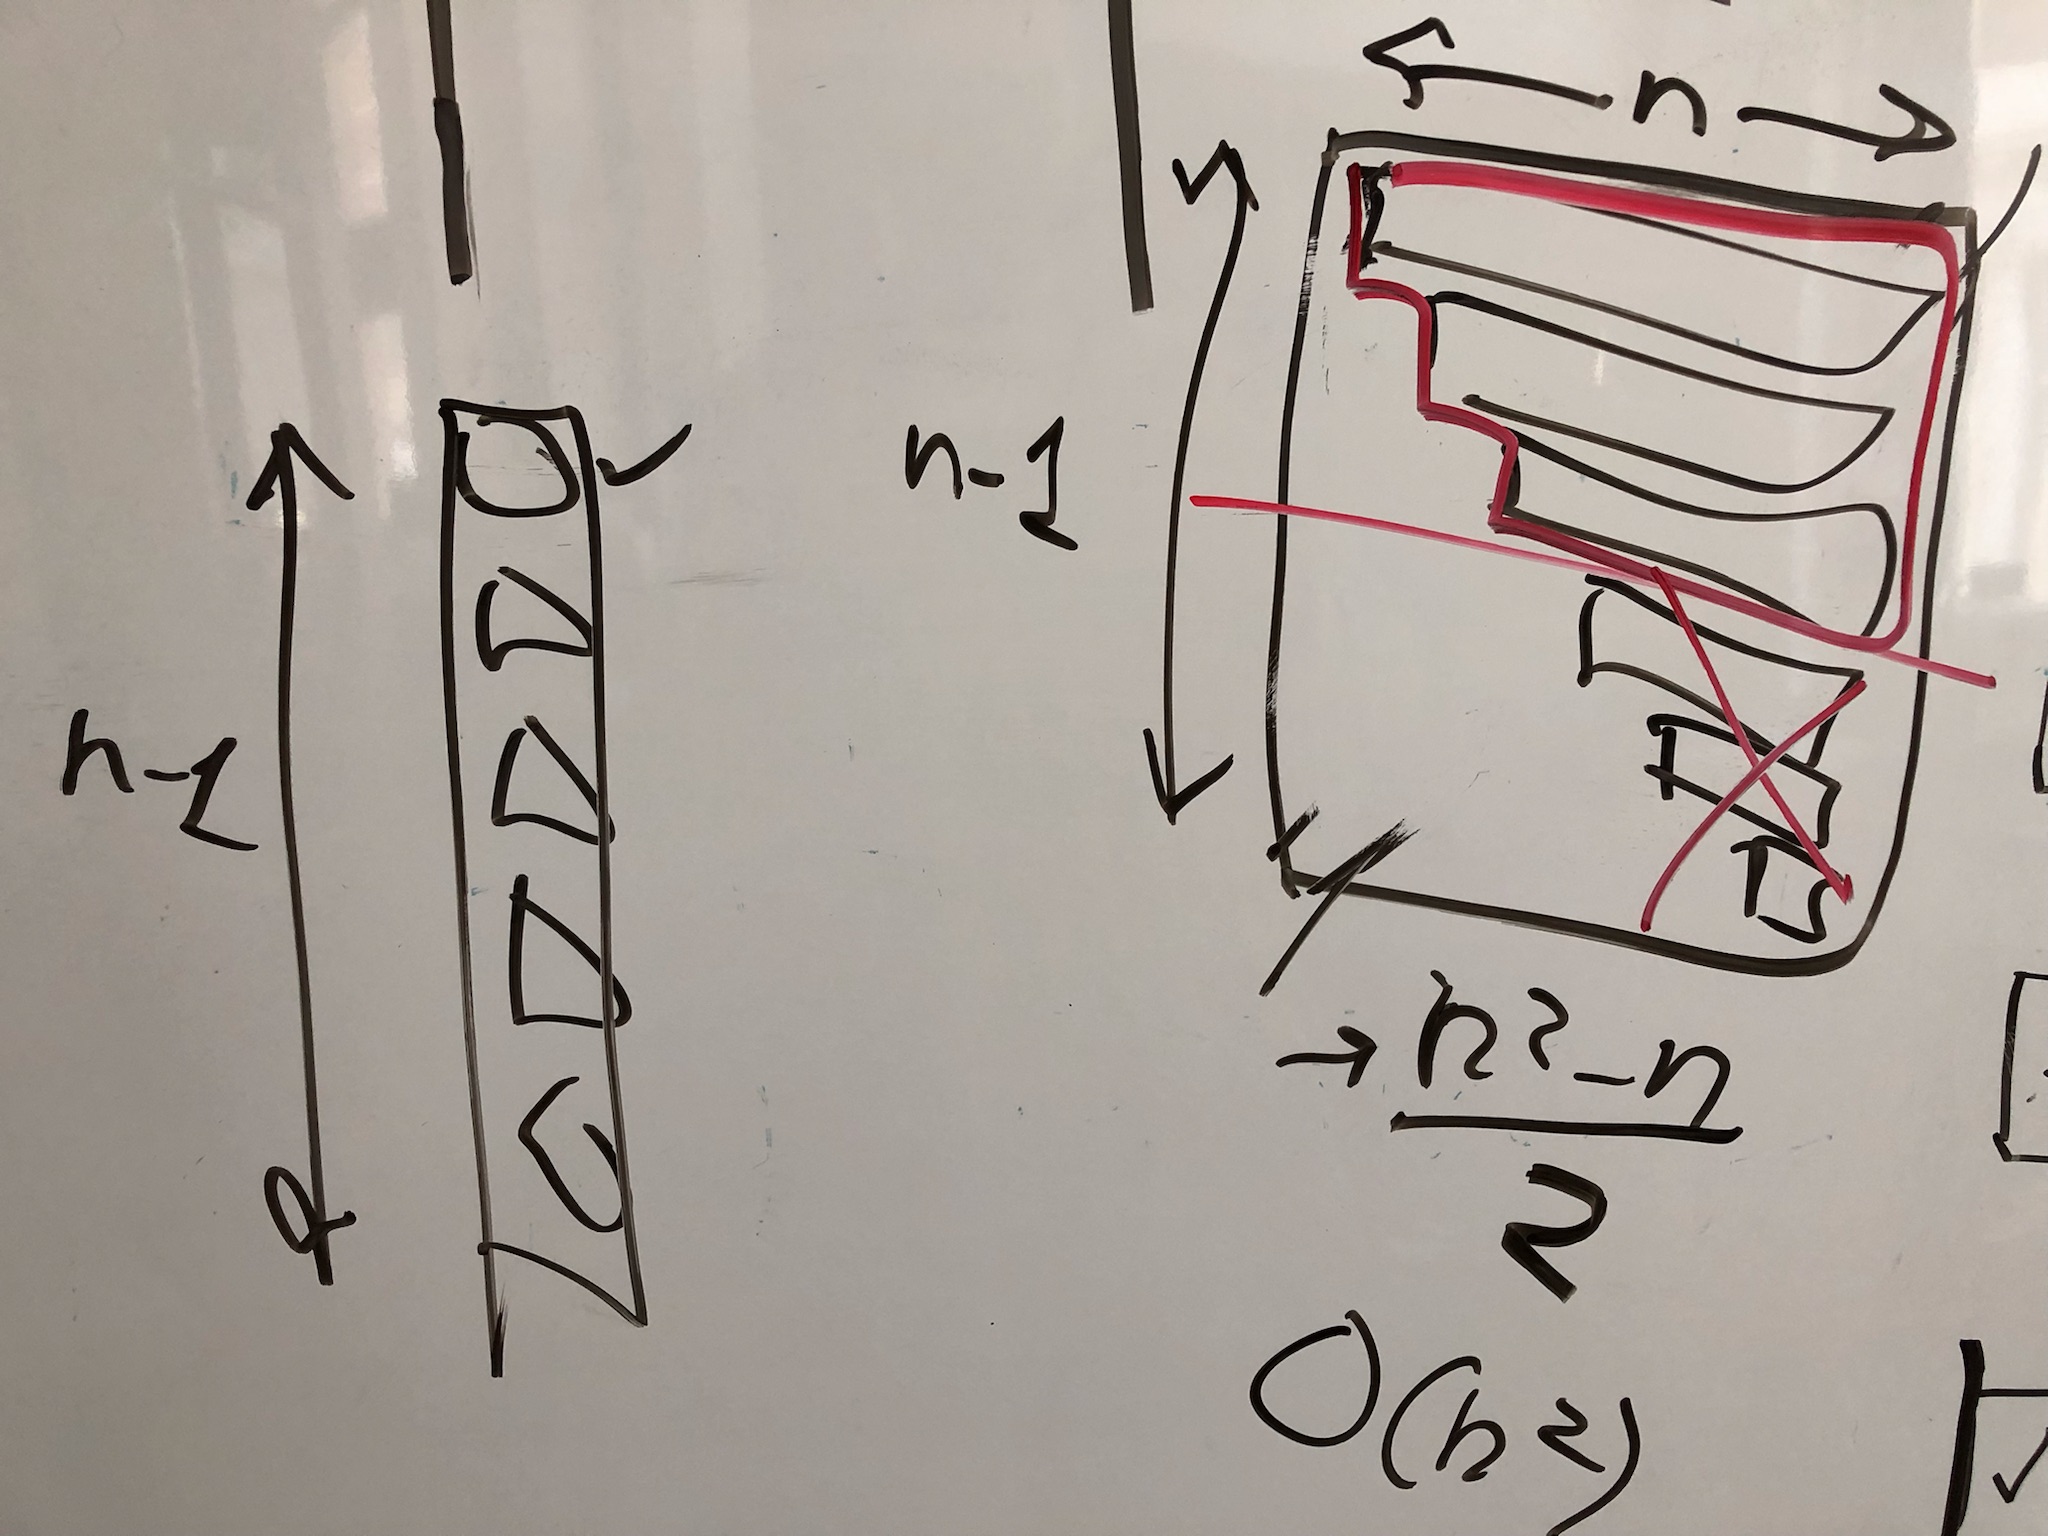 n
n-1
n-1
→ n²-n
2
O(n²)